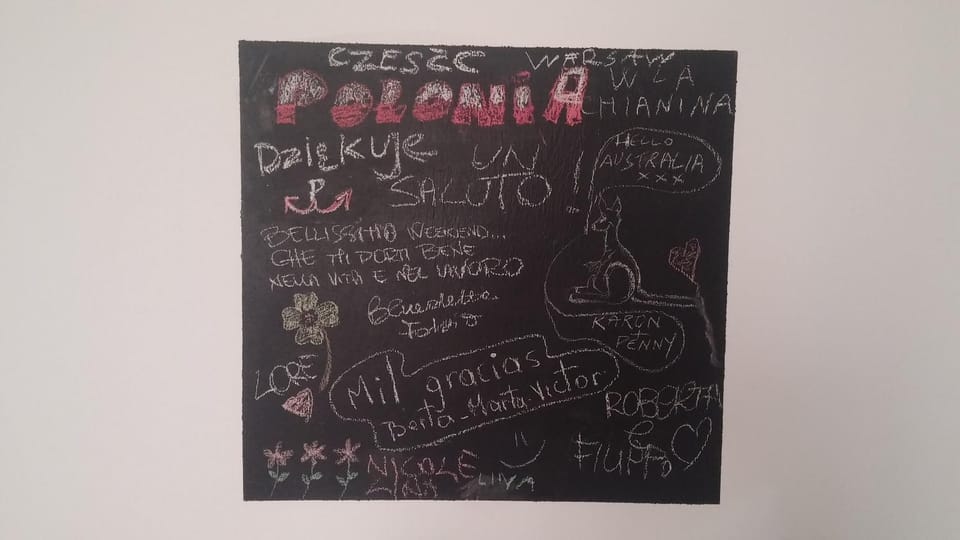 CZESŠC WARSAW
POLONIA
W LA
CHIANINA
Dziękuje
UN
SALUTO
P
HELLO
AUSTRALIA
XXX
BELLISSIMO WEEKEND...
CHE TI PORTI BENE
NELLA VITA E NEL LAVORO
Benedetta
KARON
+
PENNY
LORE
Mil gracias
Berta-Marta-Victor
ROBERTA
E
FILIPPO
NICOLE
LINA